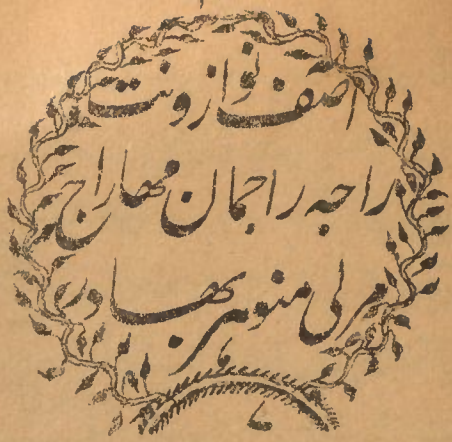 آصف نواز ونت
راجہ راجمان مہاراج
مرلی منوہر بہادر